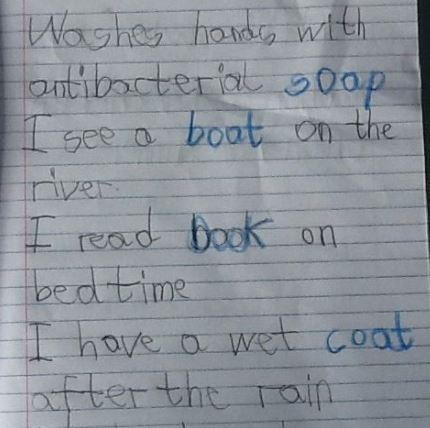 Washes hands with
antibacterial soap
I see a boat on the
river.
I read book on
bedtime
I have a wet coat
after the rain